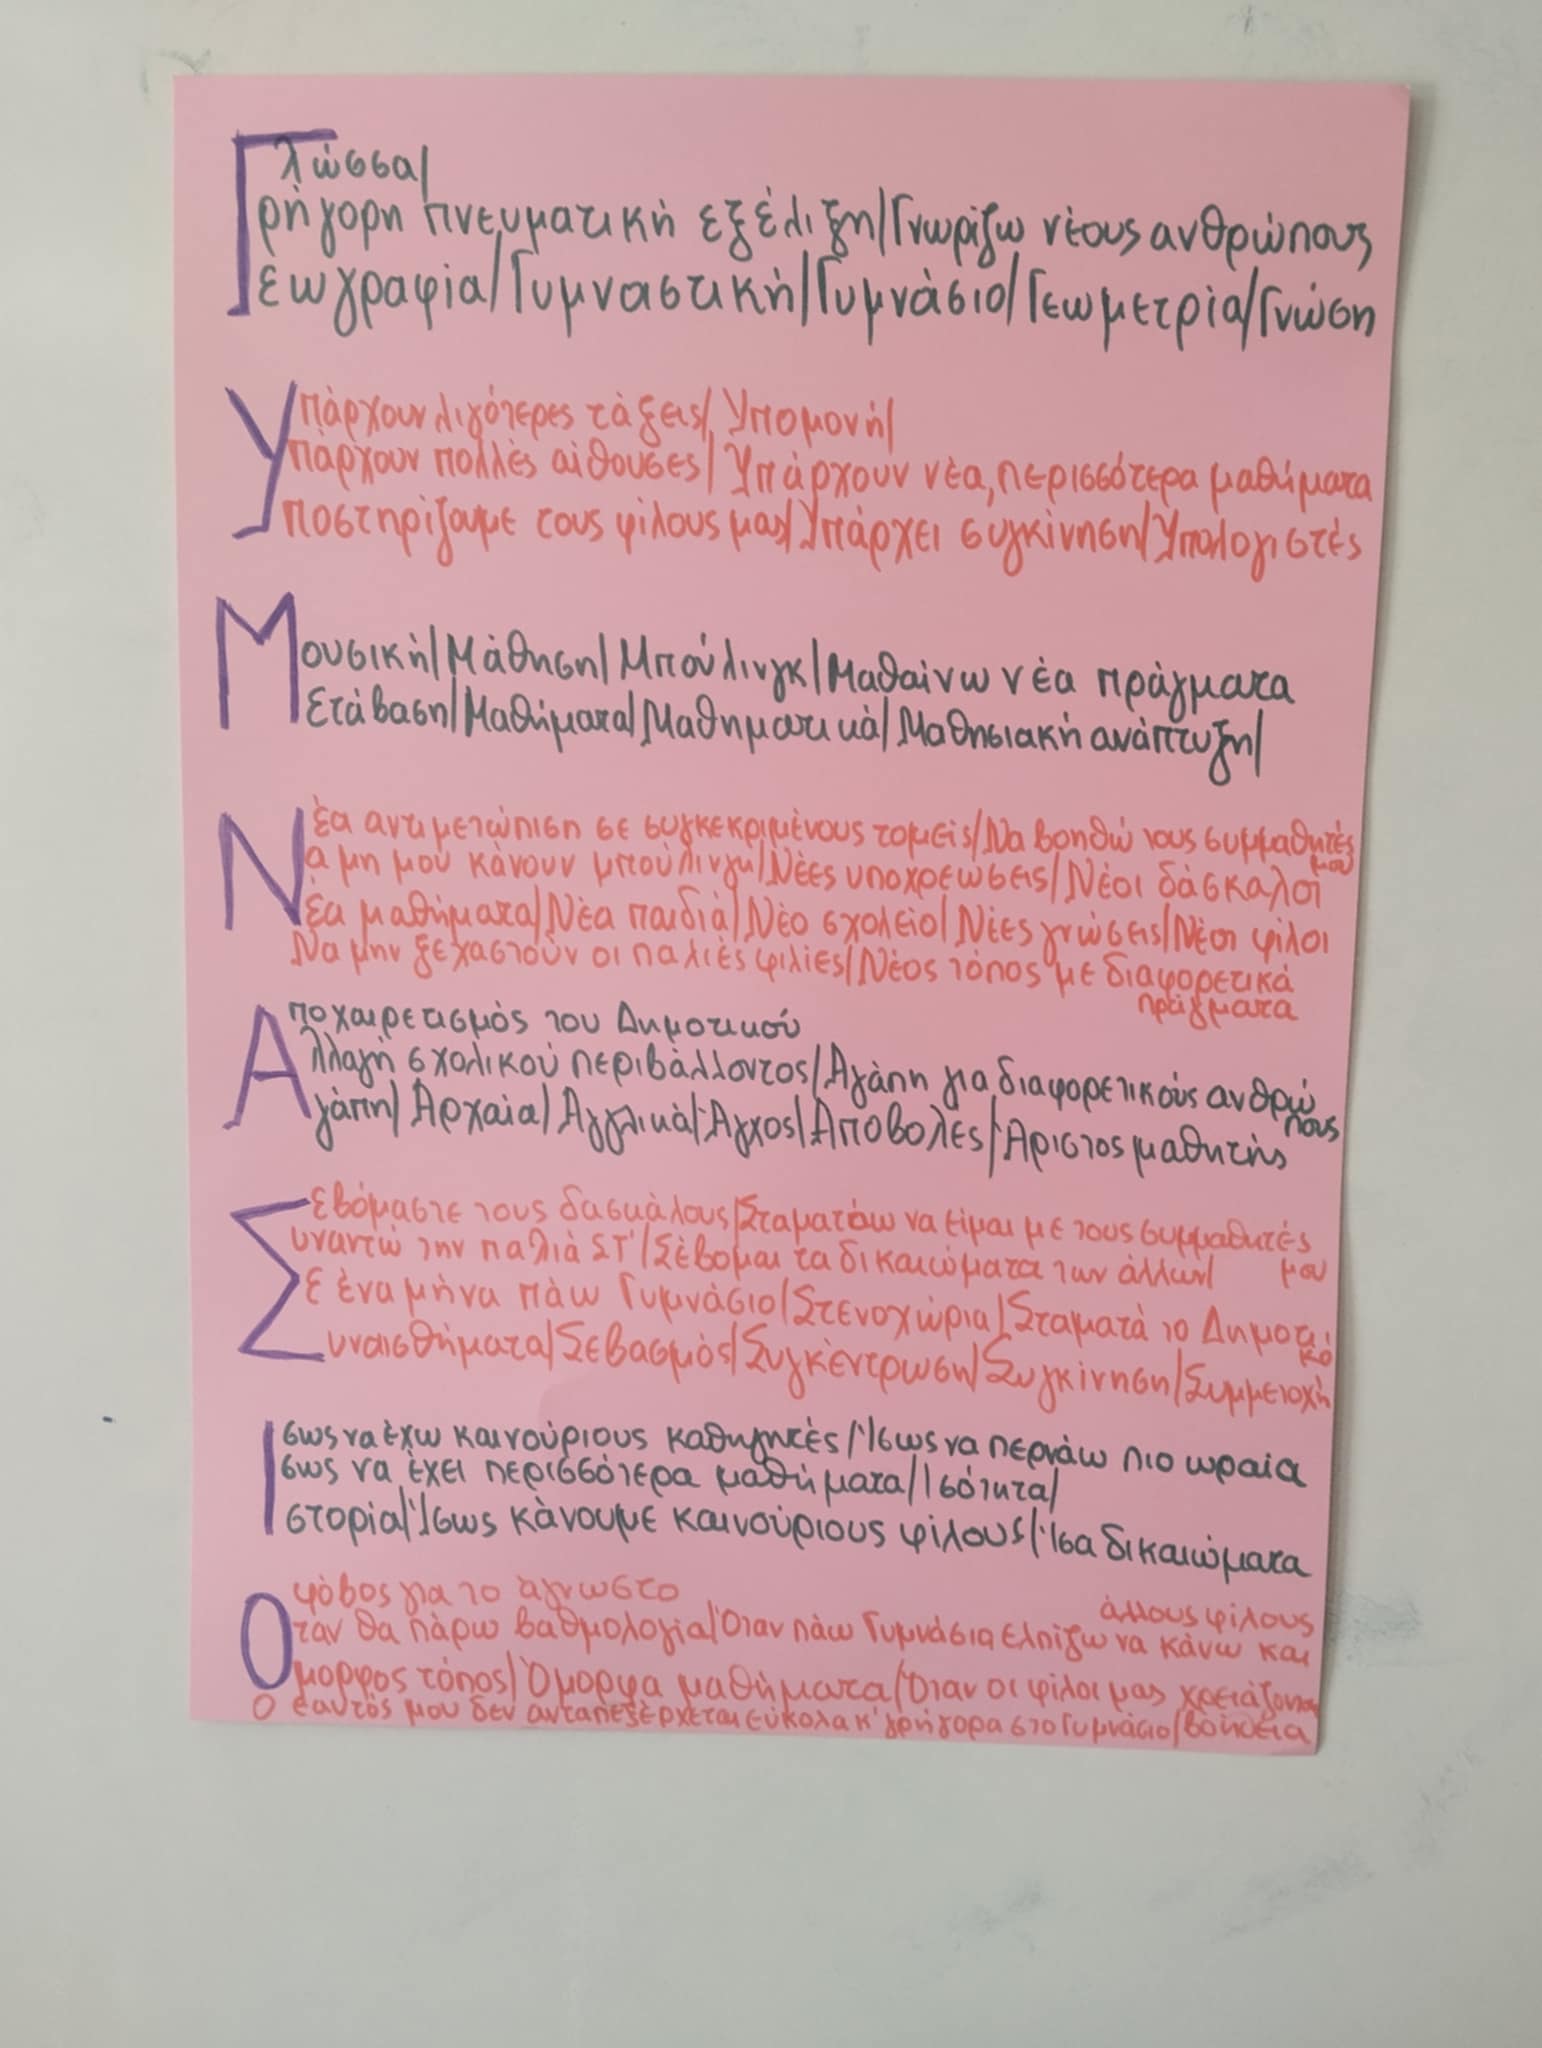 Γλώσσα/
Γρήγορη πνευματική εξέλιξη/Γνωρίζω νέους ανθρώπους
Γεωγραφία/Γυμναστική/Γυμνάσιο/Γεωμετρία/Γνώση
Υπάρχουν λιγότερες τάξεις/Υπομονή/
Υπάρχουν πολλές αίθουσες/Υπάρχουν νέα, περισσότερα μαθήματα
Υποστηρίζουμε τους φίλους μας/Υπάρχει συγκίνηση/Υπολογιστές
Μουσική/Μάθηση/Μπούλινγκ/Μαθαίνω νέα πράγματα
Μετάβαση/Μαθήματα/Μαθηματικά/Μαθησιακή ανάπτυξη/
Νέα αντιμετώπιση σε συγκεκριμένους τομείς/Να βοηθώ τους συμμαθητές μου
Να μη μου κάνουν μπούλινγκ/Νέες υποχρεώσεις/Νέοι δάσκαλοι
Νέα μαθήματα/Νέα παιδιά/Νέο σχολείο/Νέες γνώσεις/Νέοι φίλοι
Να μην ξεχαστούν οι παλιές φιλίες/Νέος τόπος με διαφορετικά
πράγματα
Αποχαιρετισμός του Δημοτικού
Αλλαγή σχολικού περιβάλλοντος/Αγάπη για διαφορετικούς ανθρώ
πους
Αγάπη/Αρχαία/Αγγλικά/Άγχος/Αποβολές/Άριστος μαθητής
Σεβόμαστε τους δασκάλους/Σταματάω να είμαι με τους συμμαθητές
μου
Συναντώ την παλιά ΣΤ'/Σέβομαι τα δικαιώματα των άλλων/
Σε ένα μήνα πάω Γυμνάσιο/Στενοχώρια/Σταματά το Δημοτι
κό
Συναισθήματα/Σεβασμός/Συγκέντρωση/Συγκίνηση/Συμμετοχή
Ισως να έχω καινούριους καθηγητές/Ίσως να περνάω πιο ωραία
Ισως να έχει περισσότερα μαθήματα/Ισότητα/
Ιστορία/Ίσως κάνουμε καινούριους φίλους/Ίσα δικαιώματα
Ο φόβος για το άγνωστο
άλλους φίλους
Οταν θα πάρω βαθμολογία/Όταν πάω Γυμνάσιο ελπίζω να κάνω και
Ομορφος τόπος/Όμορφα μαθήματα/Όταν οι φίλοι μας χρειάζονται
Ο εαυτός μου δεν ανταπεξέρχεται εύκολα κ' γρήγορα στο Γυμνάσιο/βοήθεια